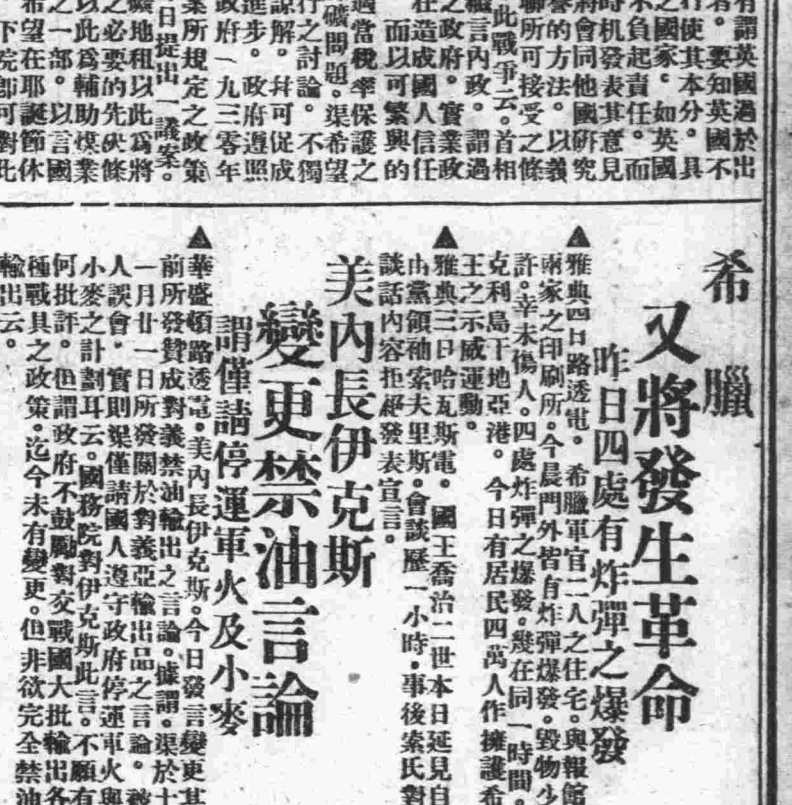 有謂英國過於出
者。要知英國不
行使其本分。具
之國家。如英國
不負起責任。而
時机發表其意見
將會同他國研究
譽的方法。以義
聯所可接受之條
此戰爭云。首相
繼言內政。謂過
之政府。實業政
在造成國人信任
而以可繁興的
適當稅率保護之
礦問題。渠希望
行之討論。不獨
諒解。幷可促成
進步。政府遵照
政府一九三零年
案所規定之政策
日提出一議案。
礦地租以此爲將
之必要的先決條
以此爲輔助煤業
之一部。以言國
希望在耶誕節休
下院卽可對此
希臘
又將發生革命
昨日四處有炸彈之爆發
▲雅典四日路透電。希臘軍官二人之住宅。與報館
兩家之印刷所。今晨門外皆有炸彈爆發。毀物少
許。幸未傷人。四處炸彈之爆發。幾在同一時間。
克利島干地亞港。今日有居民四萬人作擁護希
王之示威運動。
▲雅典三日哈瓦斯電。國王喬治二世本日延見自
由黨領袖索夫里斯。會談歷一小時。事後索氏對
談話內容拒絕發表宣言。
美內長伊克斯
變更禁油言論
謂僅請停運軍火及小麥
▲華盛頓路透電。美內長伊克斯。今日發言變更其
前所發贊成對義禁油輸出之言論。據謂。渠於十
一月廿一日所發關於對義亞輸出品之言論。被
人誤會。實則渠僅請國人遵守政府停運軍火與
小麥之計劃耳云。國務院對伊克斯此言。不願有
何批評。但謂政府不鼓勵對交戰國大批輸出各
種戰具之政策。迄今未有變更。但非欲完全禁油
輸出云。